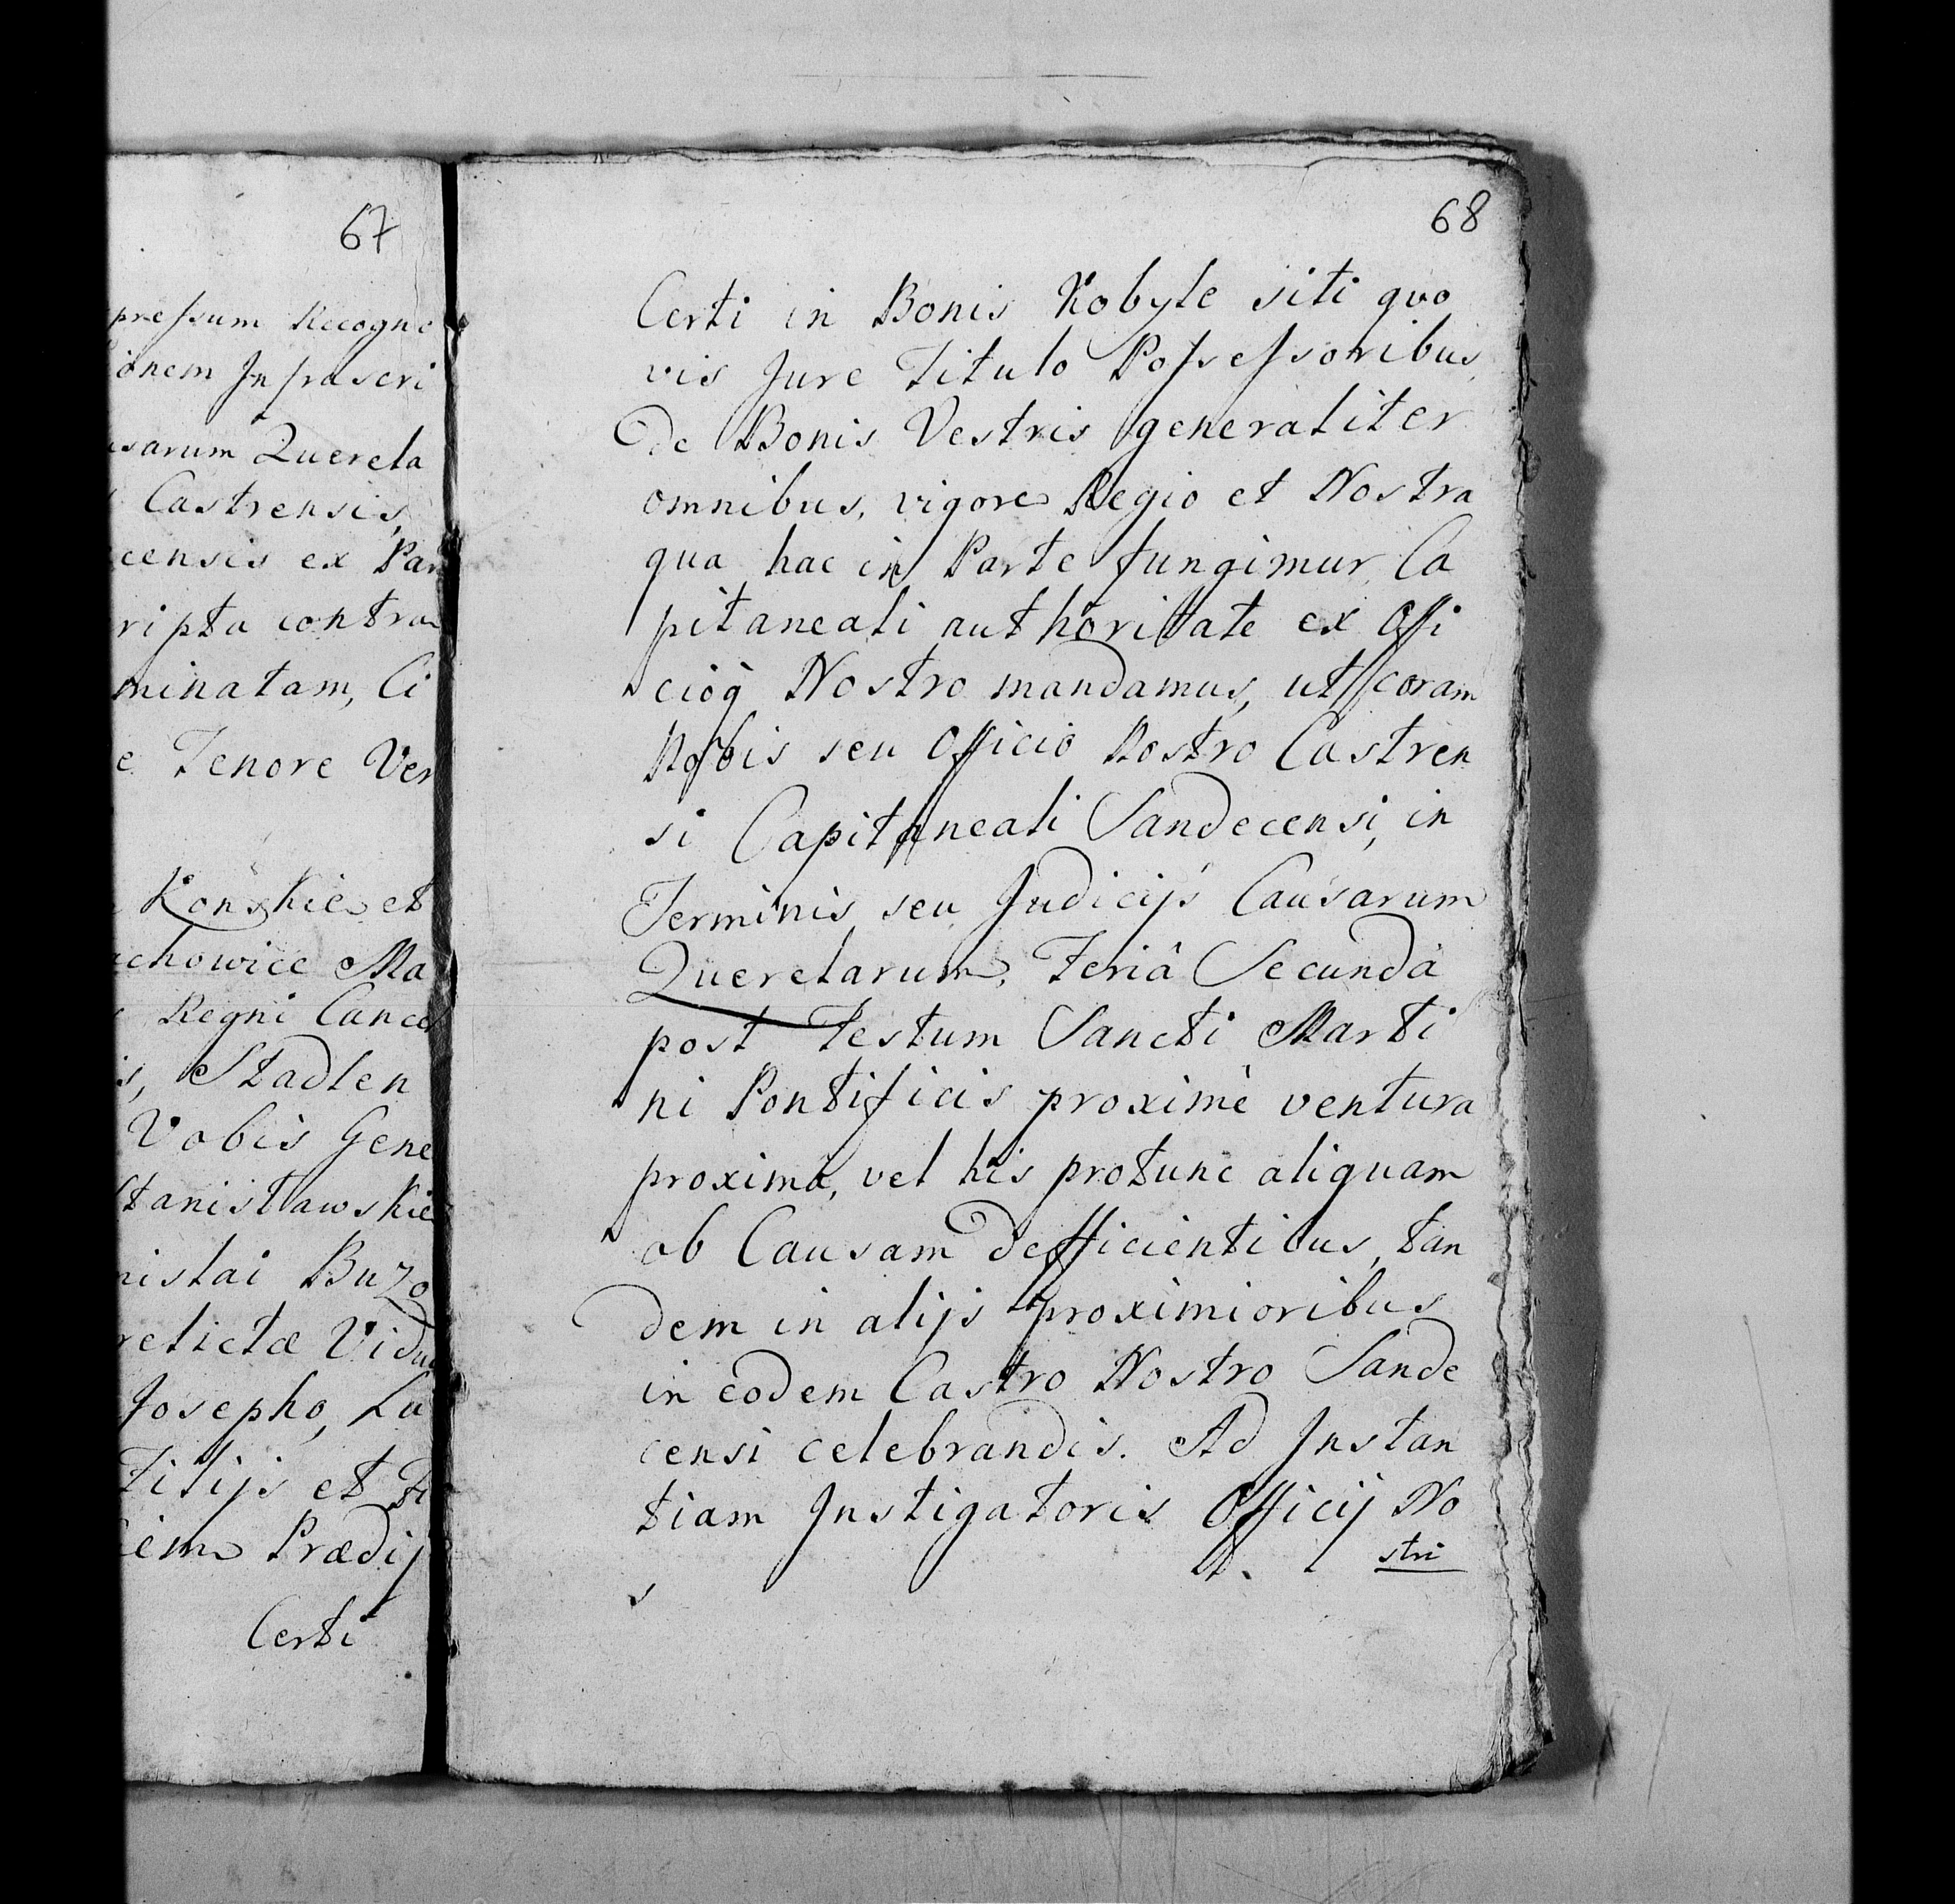 67
pressum Recogno
ionem Infrascri
sarum Querela
Castrensis,
censis ex Par
ripta contra
minatam, Ci
e Tenore Ver
Końskie et
achowice Ma
Regni Cancel
s, Stadlen
Vobis Gene
Stanisławskie
nislai Buzo
relictæ Vidu
Josepho, Lu
Filijs et Fi
Prædij
Certi
68
Certi in Bonis Kobyle siti quo
vis Jure Titulo Possessoribus,
de Bonis Vestris generaliter
omnibus, vigore Regio et Nostra
qua hac in Parte fungimur Ca
pitaneali authoritate ex Offi
cioq̀ Nostro mandamus, ut coram
Nobis seu Officio Nostro Castren
si Capitaneali Sandecensi, in
Terminis seu Judicijs Causarum
Querelarum, Feriâ Secunda
post Festum Sancti Marti
ni Pontificis proximè ventura
proxima, vel his protunc aliquam
ob Causam defficientibus, tan
dem in alijs proximioribus
in eodem Castro Nostro Sande
censi celebrandis. Ad Instan
tiam Instigatoris Officij No
stri